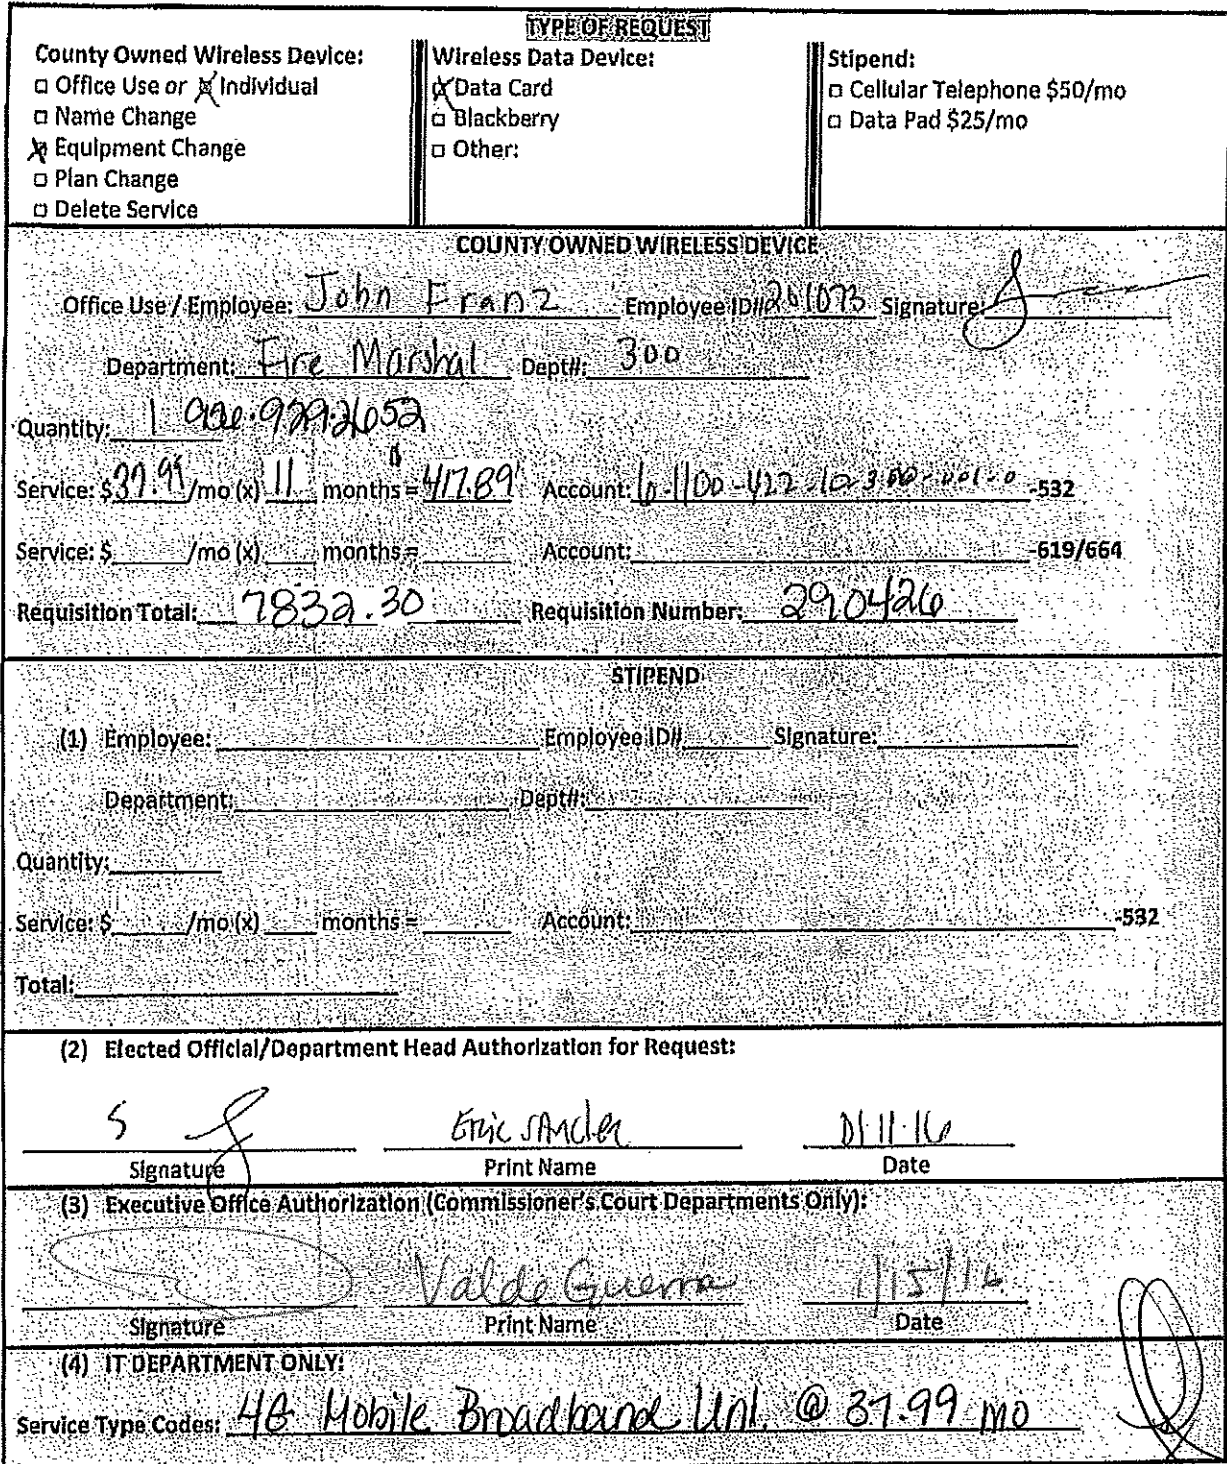 TYPE OF REQUEST
County Owned Wireless Device:
□ Office Use or ☒ Individual
□ Name Change
☒ Equipment Change
□ Plan Change
□ Delete Service
Wireless Data Device:
☒ Data Card
□ Blackberry
□ Other:
Stipend:
□ Cellular Telephone $50/mo
□ Data Pad $25/mo
COUNTY OWNED WIRELESS DEVICE
Office Use / Employee: John Franz Employee ID# 261073 Signature:
Department: Fire Marshal Dept#: 300
Quantity: 1 929.2652
Service: $37.99 /mo (x) 11 months = 417.89 Account: -532
Service: $ /mo (x) months = Account: -619/664
Requisition Total: 7832.30 Requisition Number: 290426
STIPEND
(1) Employee: Employee ID# Signature:
Department: Dept#:
Quantity:
Service: $ /mo (x) months = Account: -532
Total:
(2) Elected Official/Department Head Authorization for Request:
Eric 01.11.16
Signature Print Name Date
(3) Executive Office Authorization (Commissioner's Court Departments Only):
Valde Guerra 1/15/16
Signature Print Name Date
(4) IT DEPARTMENT ONLY:
Service Type Codes: 4G Mobile Broadband Unl. @ 37.99 mo